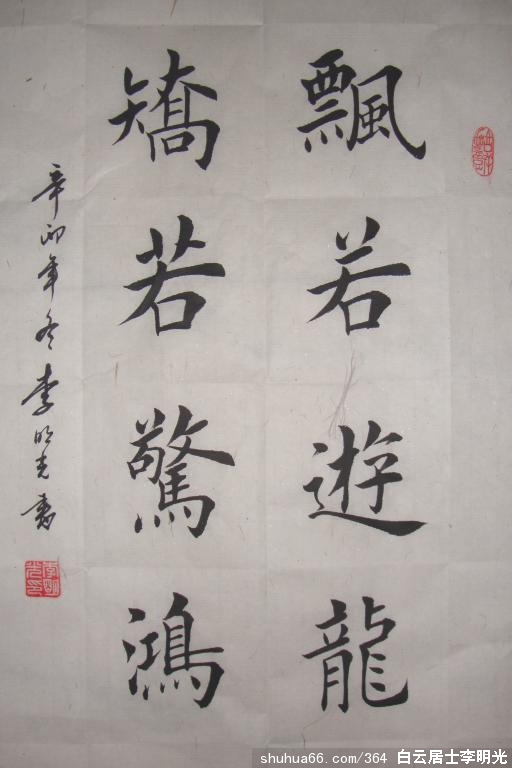 飄若遊龍
矯若驚鴻
辛卯年冬李明光書
李明光印
shuhua66.com/364 白云居士李明光